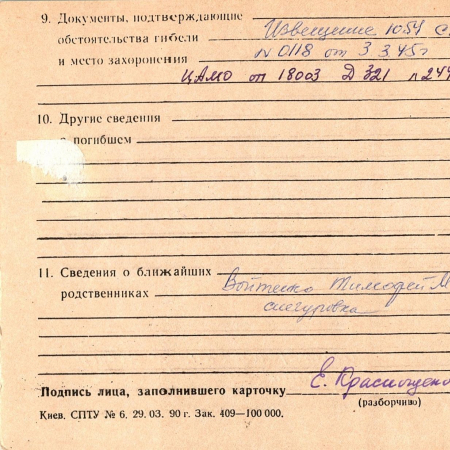 9. Документы, подтверждающие Извещение 1054 с
обстоятельства гибели N 0118 от 3.3.45г
и место захоронения
ЦАМО оп 18003 Д 321 л 244
10. Другие сведения
о погибшем
11. Сведения о ближайших Войтенко Тимофей М
родственниках снегуровка
Подпись лица, заполнившего карточку Е. Краснощено
(разборчиво)
Киев. СПТУ № 6. 29. 03. 90 г. Зак. 409—100 000.